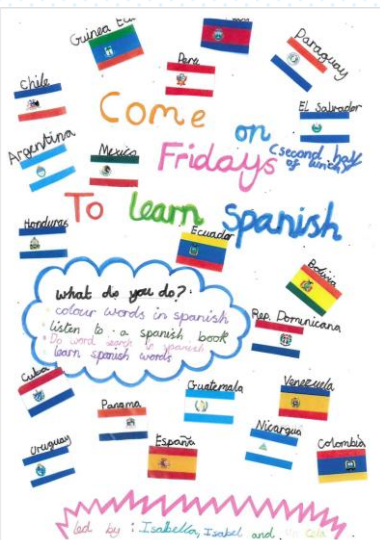 Guinea Ecu
Perú
Paraguay
Chile
Come
on
El Salvador
Argentina
Mexico
Fridays
(second half
of lunch)
To learn Spanish
Honduras
Ecuador
Bolivia
what do you do?
colour words in spanish
listen to a spanish book
Do word search in spanish
learn spanish words
Rep. Dominicana
Cuba
Panama
Guatemala
Venezuela
Uruguay
España
Nicargua
Colombia
led by : Isabella, Isabel and